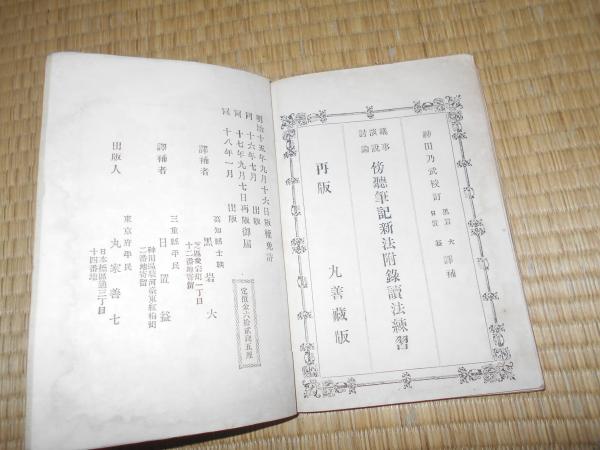 神田乃武校訂 黒岩大 日置益 譯補
議事演説討論 傍聽筆記新法附錄讀法練習
再版 丸善藏版
明治十五年九月十六日版權免許
同 十六年七月 出版
同 十七年九月七日再版御届
同 十八年一月 出版
定價金六拾貳錢五厘
譯補者 高知縣士族 黒岩大
芝區愛宕町一丁目
十二番地寄留
譯補者 三重縣平民 日置益
神田區駿河臺東紅梅町
二番地寄留
出版人 東京府平民 丸家善七
日本橋區通三丁目
十四番地